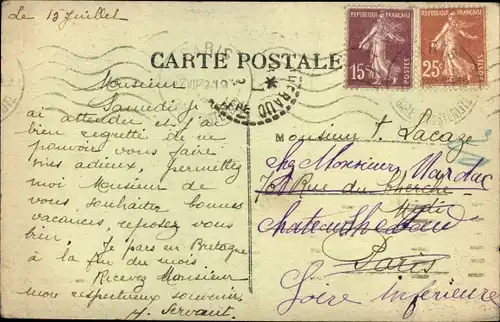 Le 15 Juillet
CARTE POSTALE
RÉPUBLIQUE FRANÇAISE
15c POSTES
RÉPUBLIQUE FRANÇAISE
25c POSTES
Monsieur
Samedi je
ai attendu et j'ai
bien regretté de ne
pouvoir vous faire
mes adieux, permettez
moi Monsieur de
vous souhaiter bonnes
vacances, reposez vous
bien. Je pars en Bretagne
à la fin du mois
Recevez Monsieur
mon respectueux souvenir
H. Servant
Monsieur F. Lacaze
chez Monsieur
Rue du Cherche
Midi
Paris
Loire inférieure